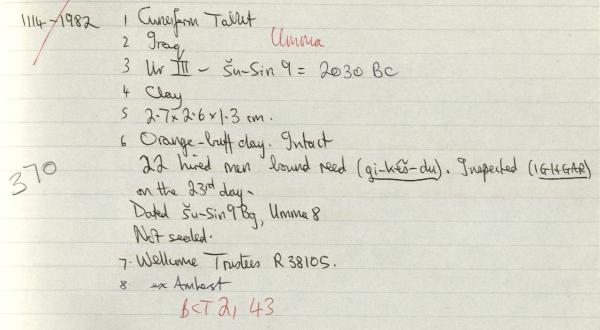 1114-1982 1 Cuneiform Tablet
2 Iraq Umma
3 Ur III - Šu-Sin 9 = 2030 BC
4 Clay
5 2.7 x 2.6 x 1.3 cm.
6 Orange-buff clay. Intact
370 22 hired men bound reed (gi-kéš-du). Inspected (IGI+GAR)
on the 23rd day.
Dated Šu-Sin 9, Umma 8
Not sealed.
7. Wellcome Trustees R 38105.
8 ex Amherst
BCT 2, 43